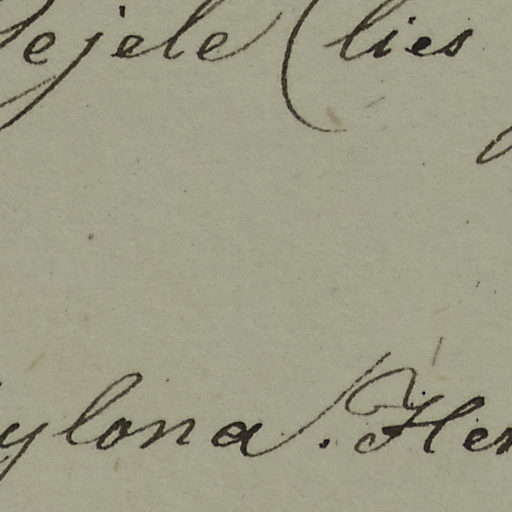 ejele (lies
ylona. Her